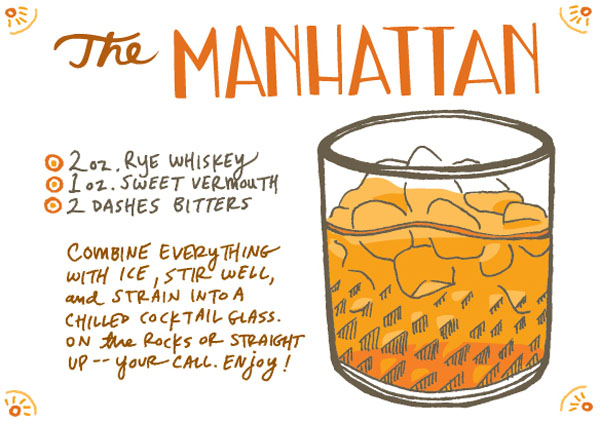 The MANHATTAN
2 oz. RYE WHISKEY
1 oz. SWEET VERMOUTH
2 DASHES BITTERS
COMBINE EVERYTHING
WITH ICE, STIR WELL,
and STRAIN INTO A
CHILLED COCKTAIL GLASS.
ON the ROCKS OR STRAIGHT
UP -- YOUR CALL. ENJOY!